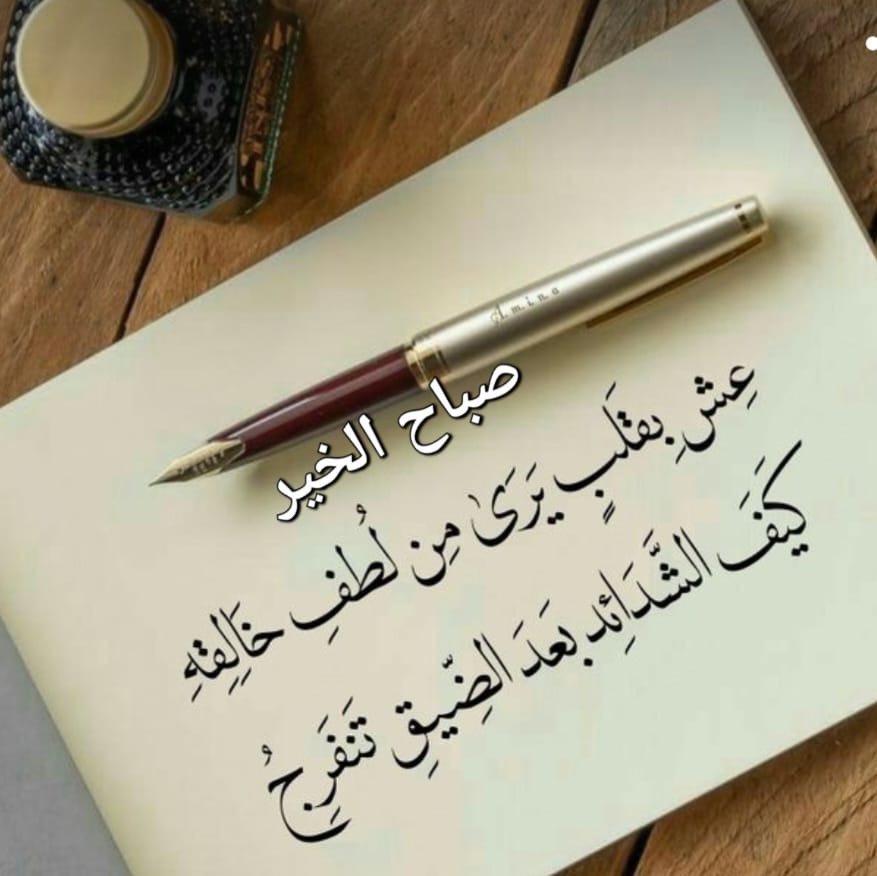 Amina
صباح الخير
عِشْ بِقَلبٍ يَرَىٰ مِن لُطفِ خَالِقِهِ
كَيفَ الشَّدَائِد بَعدَ الضِّيقِ تَنفَرِجُ